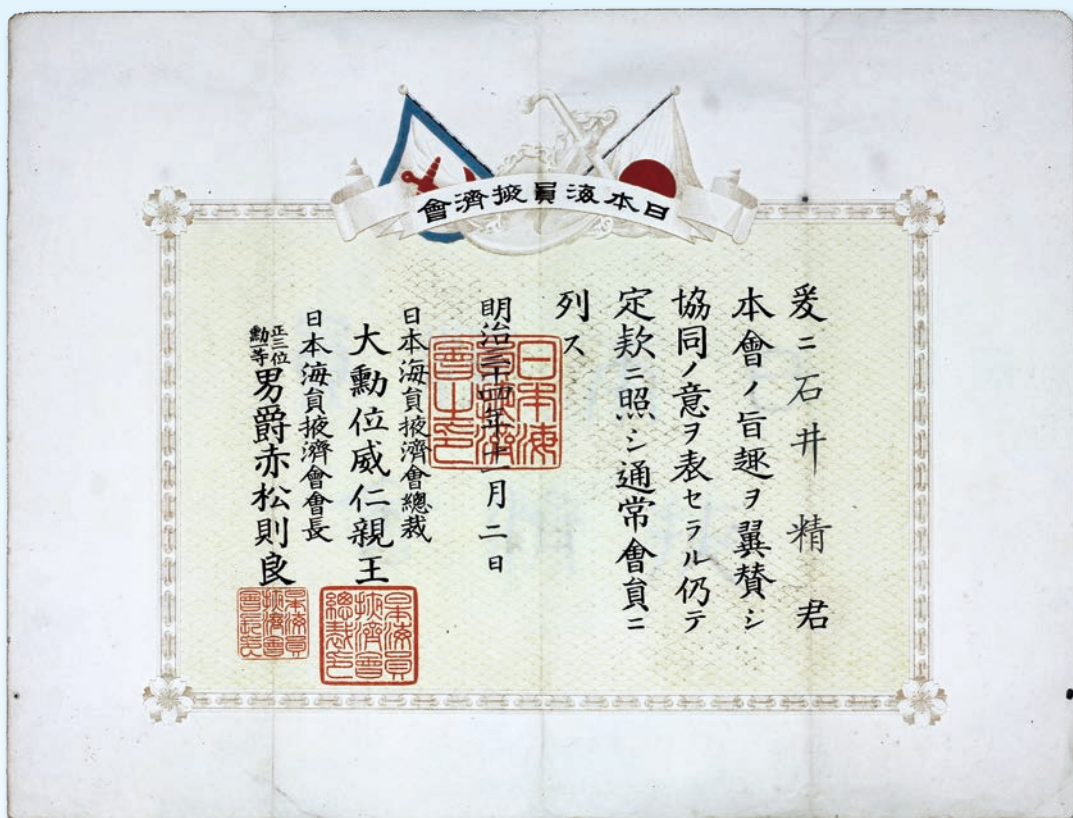 日本海員掖濟會
爰ニ石井精君
本會ノ旨趣ヲ翼賛シ
協同ノ意ヲ表セラル仍テ
定款ニ照シ通常會員ニ
列ス
明治三十四年十一月二日
日本海員掖濟會總裁
大勳位威仁親王
日本海員掖濟會會長
正三位
勳等男爵赤松則良
日本海員掖濟會之印
日本海員掖濟會總裁印
日本海員掖濟會會長印